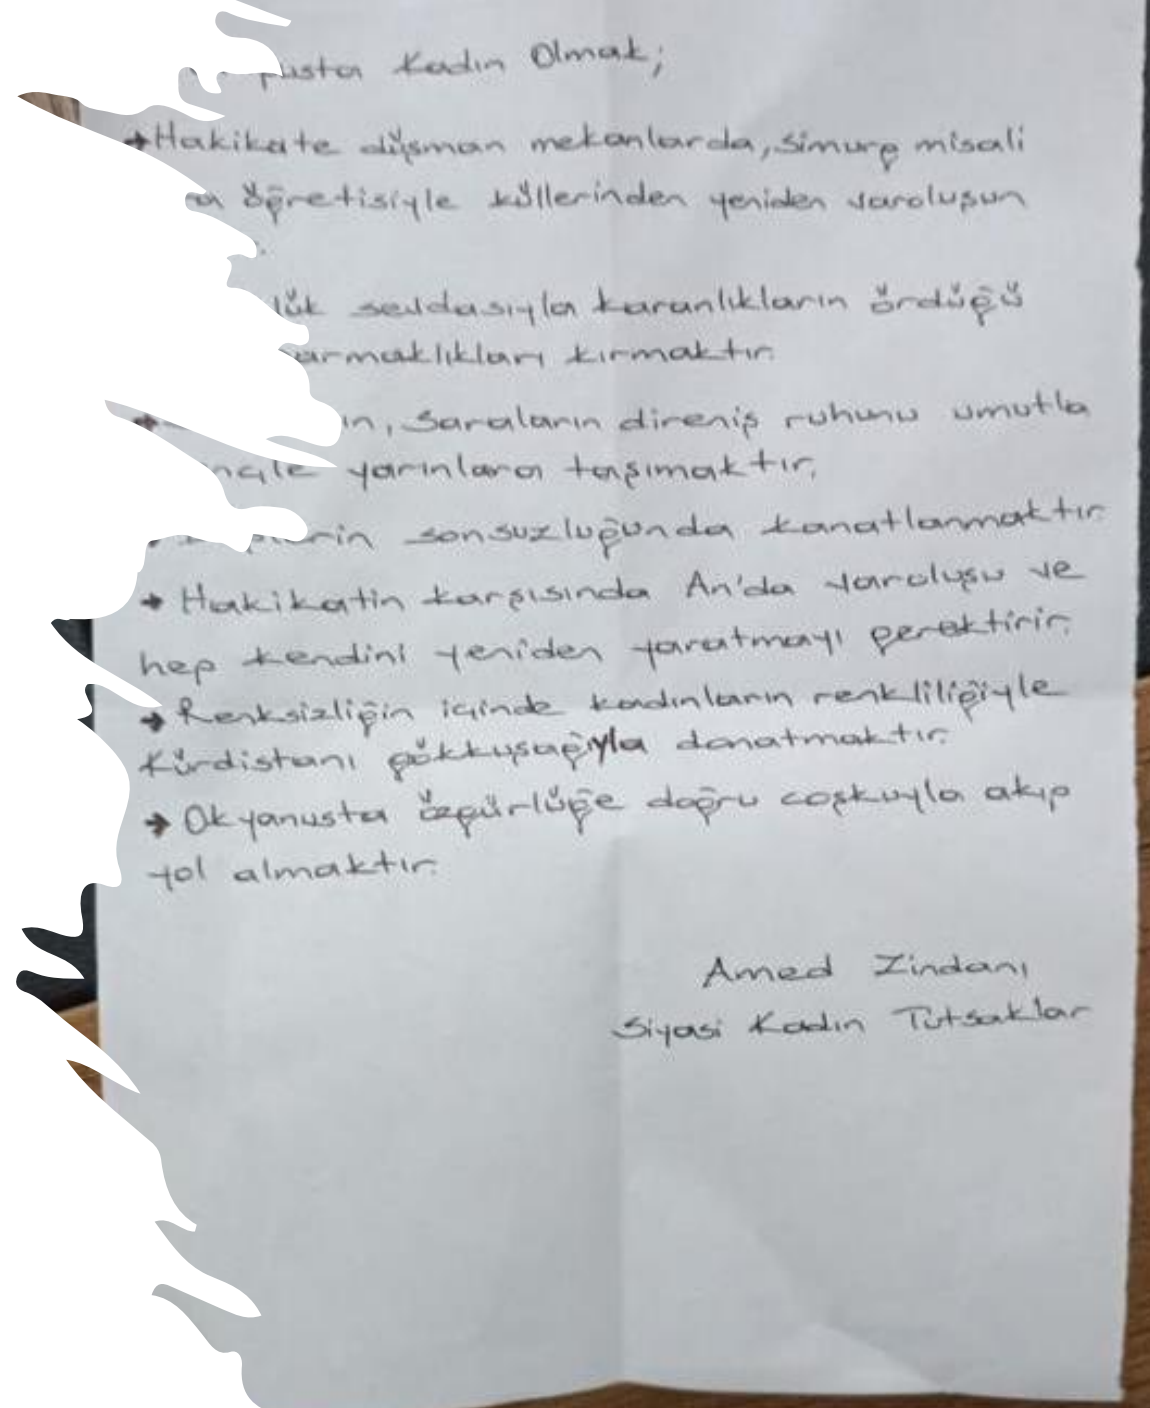 Kadın Olmak;
→Hakikate düşman mekanlarda, simurg misali
öğretisiyle küllerinden yeniden varoluşun
sevdasıyla karanlıkların ördüğü
kırmaktır.
Saraların direniş ruhunu umutla
yarınlara taşımaktır.
sonsuzluğunda kanatlanmaktır
→ Hakikatin karşısında An'da varoluşu ve
hep kendini yeniden yaratmayı gerektirir.
→ Renksizliğin içinde kadınların renkliliğiyle
Kürdistanı gökkuşağıyla donatmaktır.
→ Okyanusta özgürlüğe doğru coşkuyla akıp
yol almaktır.
Amed Zindanı
Siyasi Kadın Tutsaklar